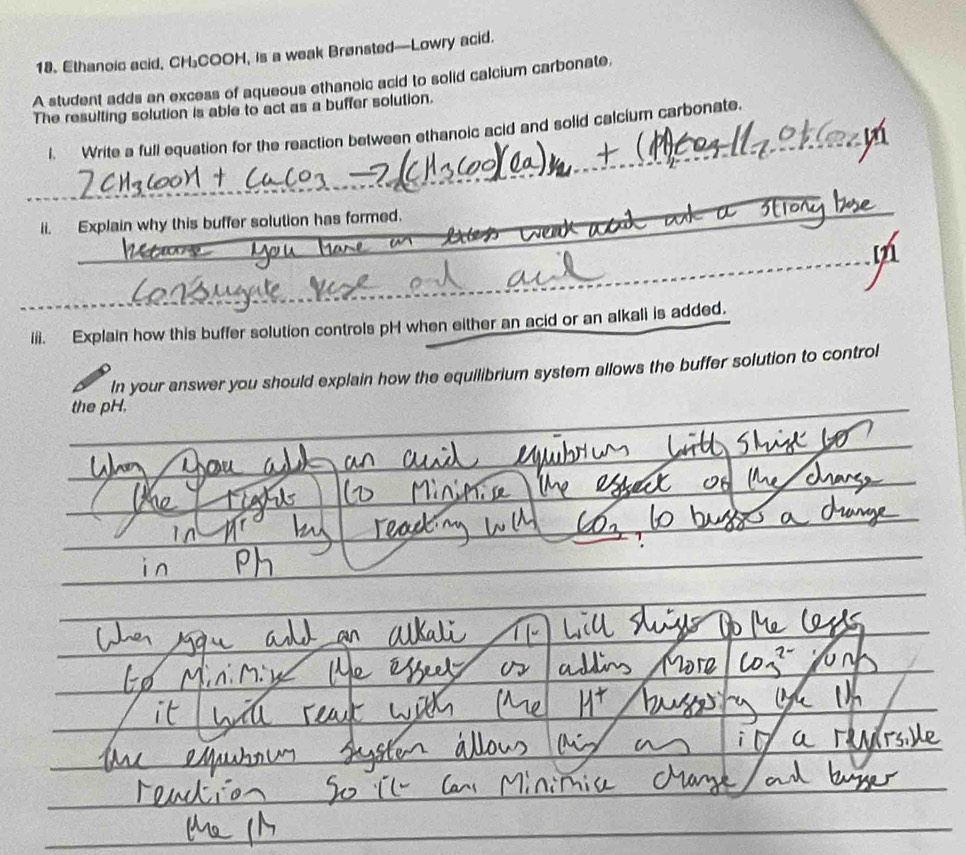 18. Ethanoic acid, CH₃COOH, is a weak Brønsted—Lowry acid.
A student adds an excess of aqueous ethanoic acid to solid calcium carbonate.
The resulting solution is able to act as a buffer solution.
i. Write a full equation for the reaction between ethanoic acid and solid calcium carbonate.
2CH3COOH + CaCO3 → (CH3COO)(Ca) + H2O + CO2 [1]
ii. Explain why this buffer solution has formed.
because you have an excess weak acid and a strong base
conjugate base and acid
[1]
iii. Explain how this buffer solution controls pH when either an acid or an alkali is added.
In your answer you should explain how the equilibrium system allows the buffer solution to control
the pH.
When you add an acid equibrium will shift to
the right to Minimise the effect of the change
in by reacting with CO3 to buffer a change
?
in Ph
When you add an alkali it will shift to the left
to Minimise the effect of adding More CO3²⁻ ions
it will react with the H⁺ buffering the Ph
the equibrium system allows this as it a reversible
reaction so it can Minimise change and buffer
the Ph